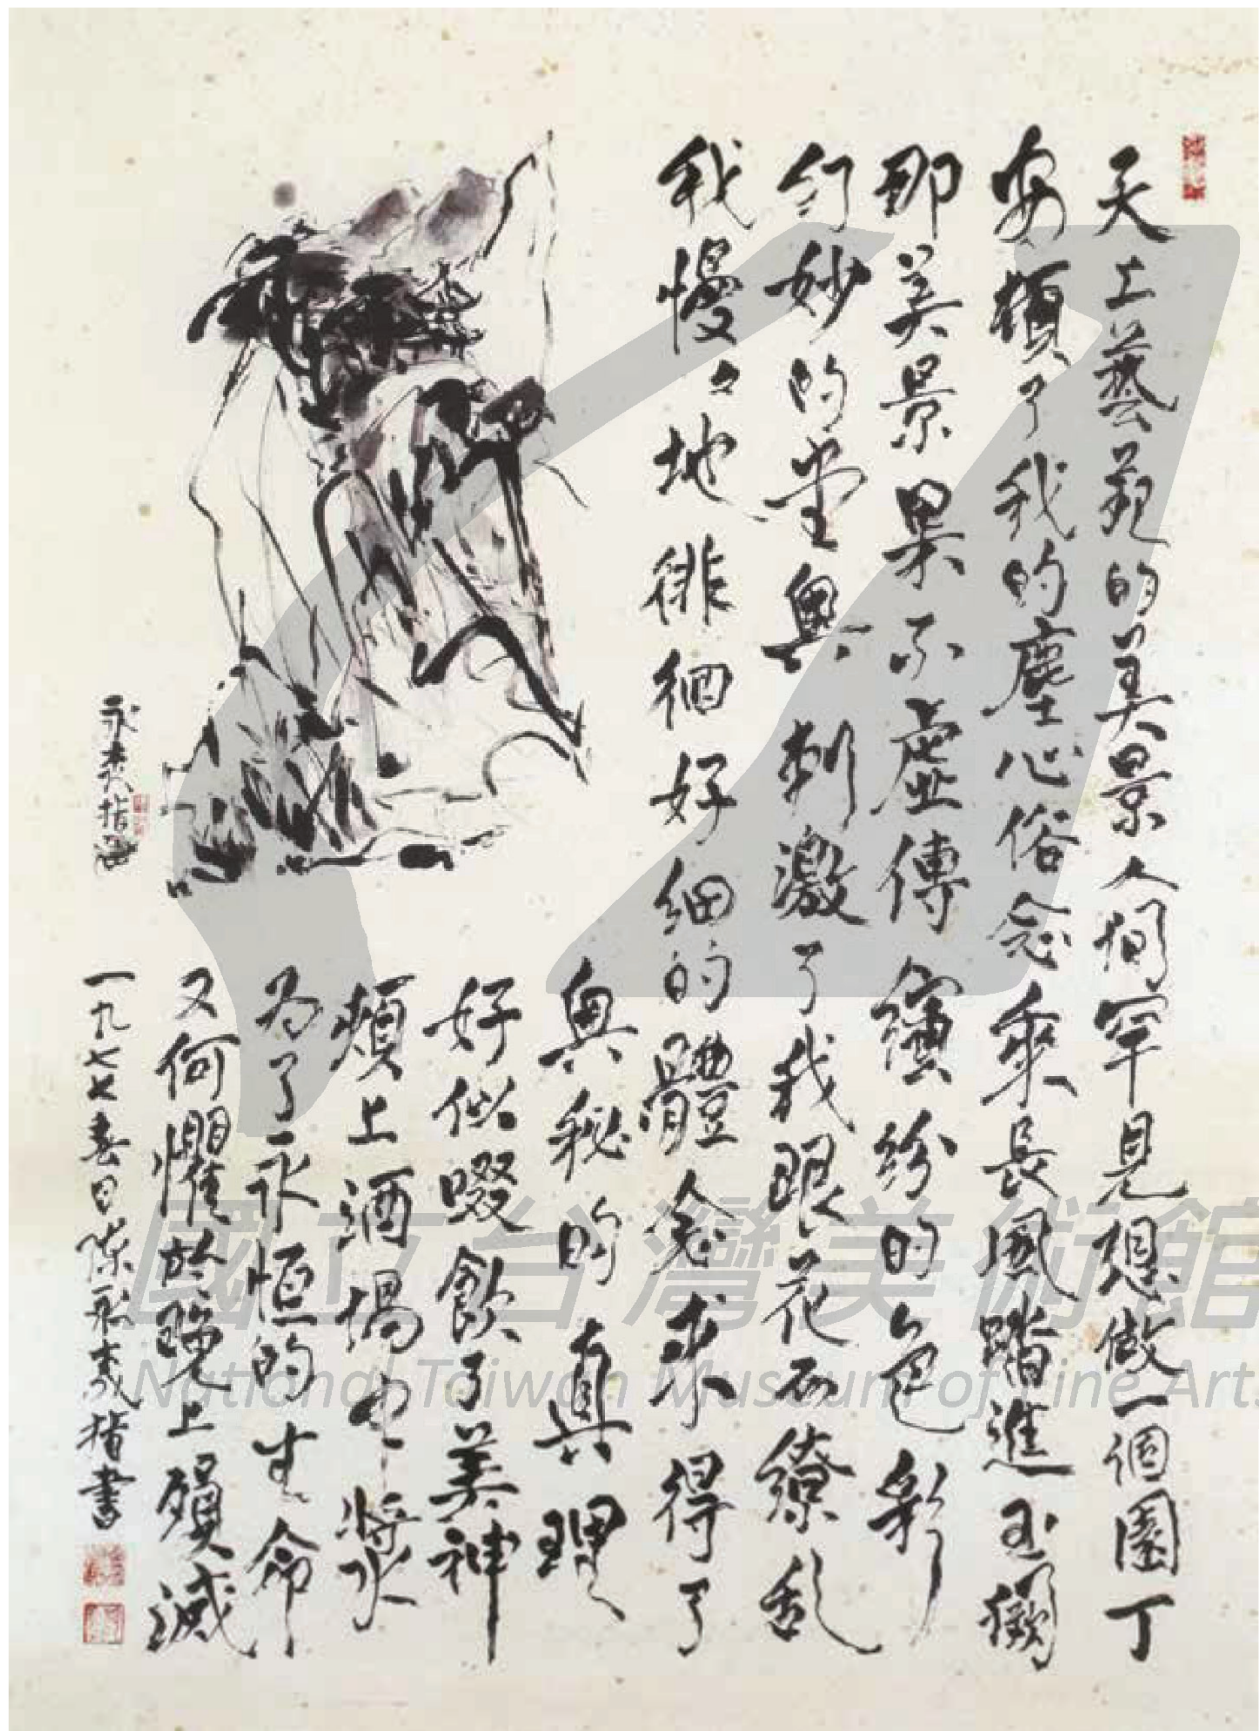 天上藝苑的美景人間罕見想做一個園丁
安頓了我的塵心俗念乘長風踏進玉闕
那美景果不虛傳繽紛的色彩
幻妙的堂奧刺激了我眼花而繚亂
我慢々地徘徊好細的體念求得了
奧秘的真理
好似啜飲了美神
頰上酒場中將水
為了永恒的生命
又何懼於晚上殞滅
一九七七春日陳永森指書
永森指画
國立台灣美術館
National Taiwan Museum of Fine Arts